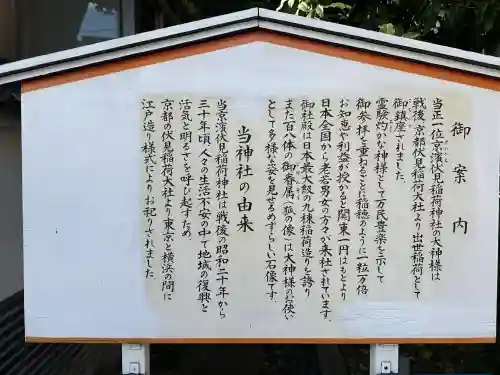 御案内
当正一位京濱伏見稲荷神社の大神様は
戦後、京都伏見稲荷大社より出世稲荷として
御鎮座されました。
霊験灼かな神様として万民豊楽を示して
御参拝を重ねるごとに稲穂のように一粒万倍
お知恵や利益が授かると関東一円はもとより
日本全国から老若男女の方々が来社されています。
御社殿は日本最大級の九棟稲荷造りを誇り
また百八体の御眷属(狐の像)は大神様のお使い
として多様な姿を見せるめずらしい石像です。
当神社の由来
当京濱伏見稲荷神社は戦後の昭和二十年から
三十年頃、人々の生活不安の中で地域の復興と
活気と明るさを呼び起すため、
京都の伏見稲荷大社より東京と横浜の間に
江戸造り様式によりお祀りされました